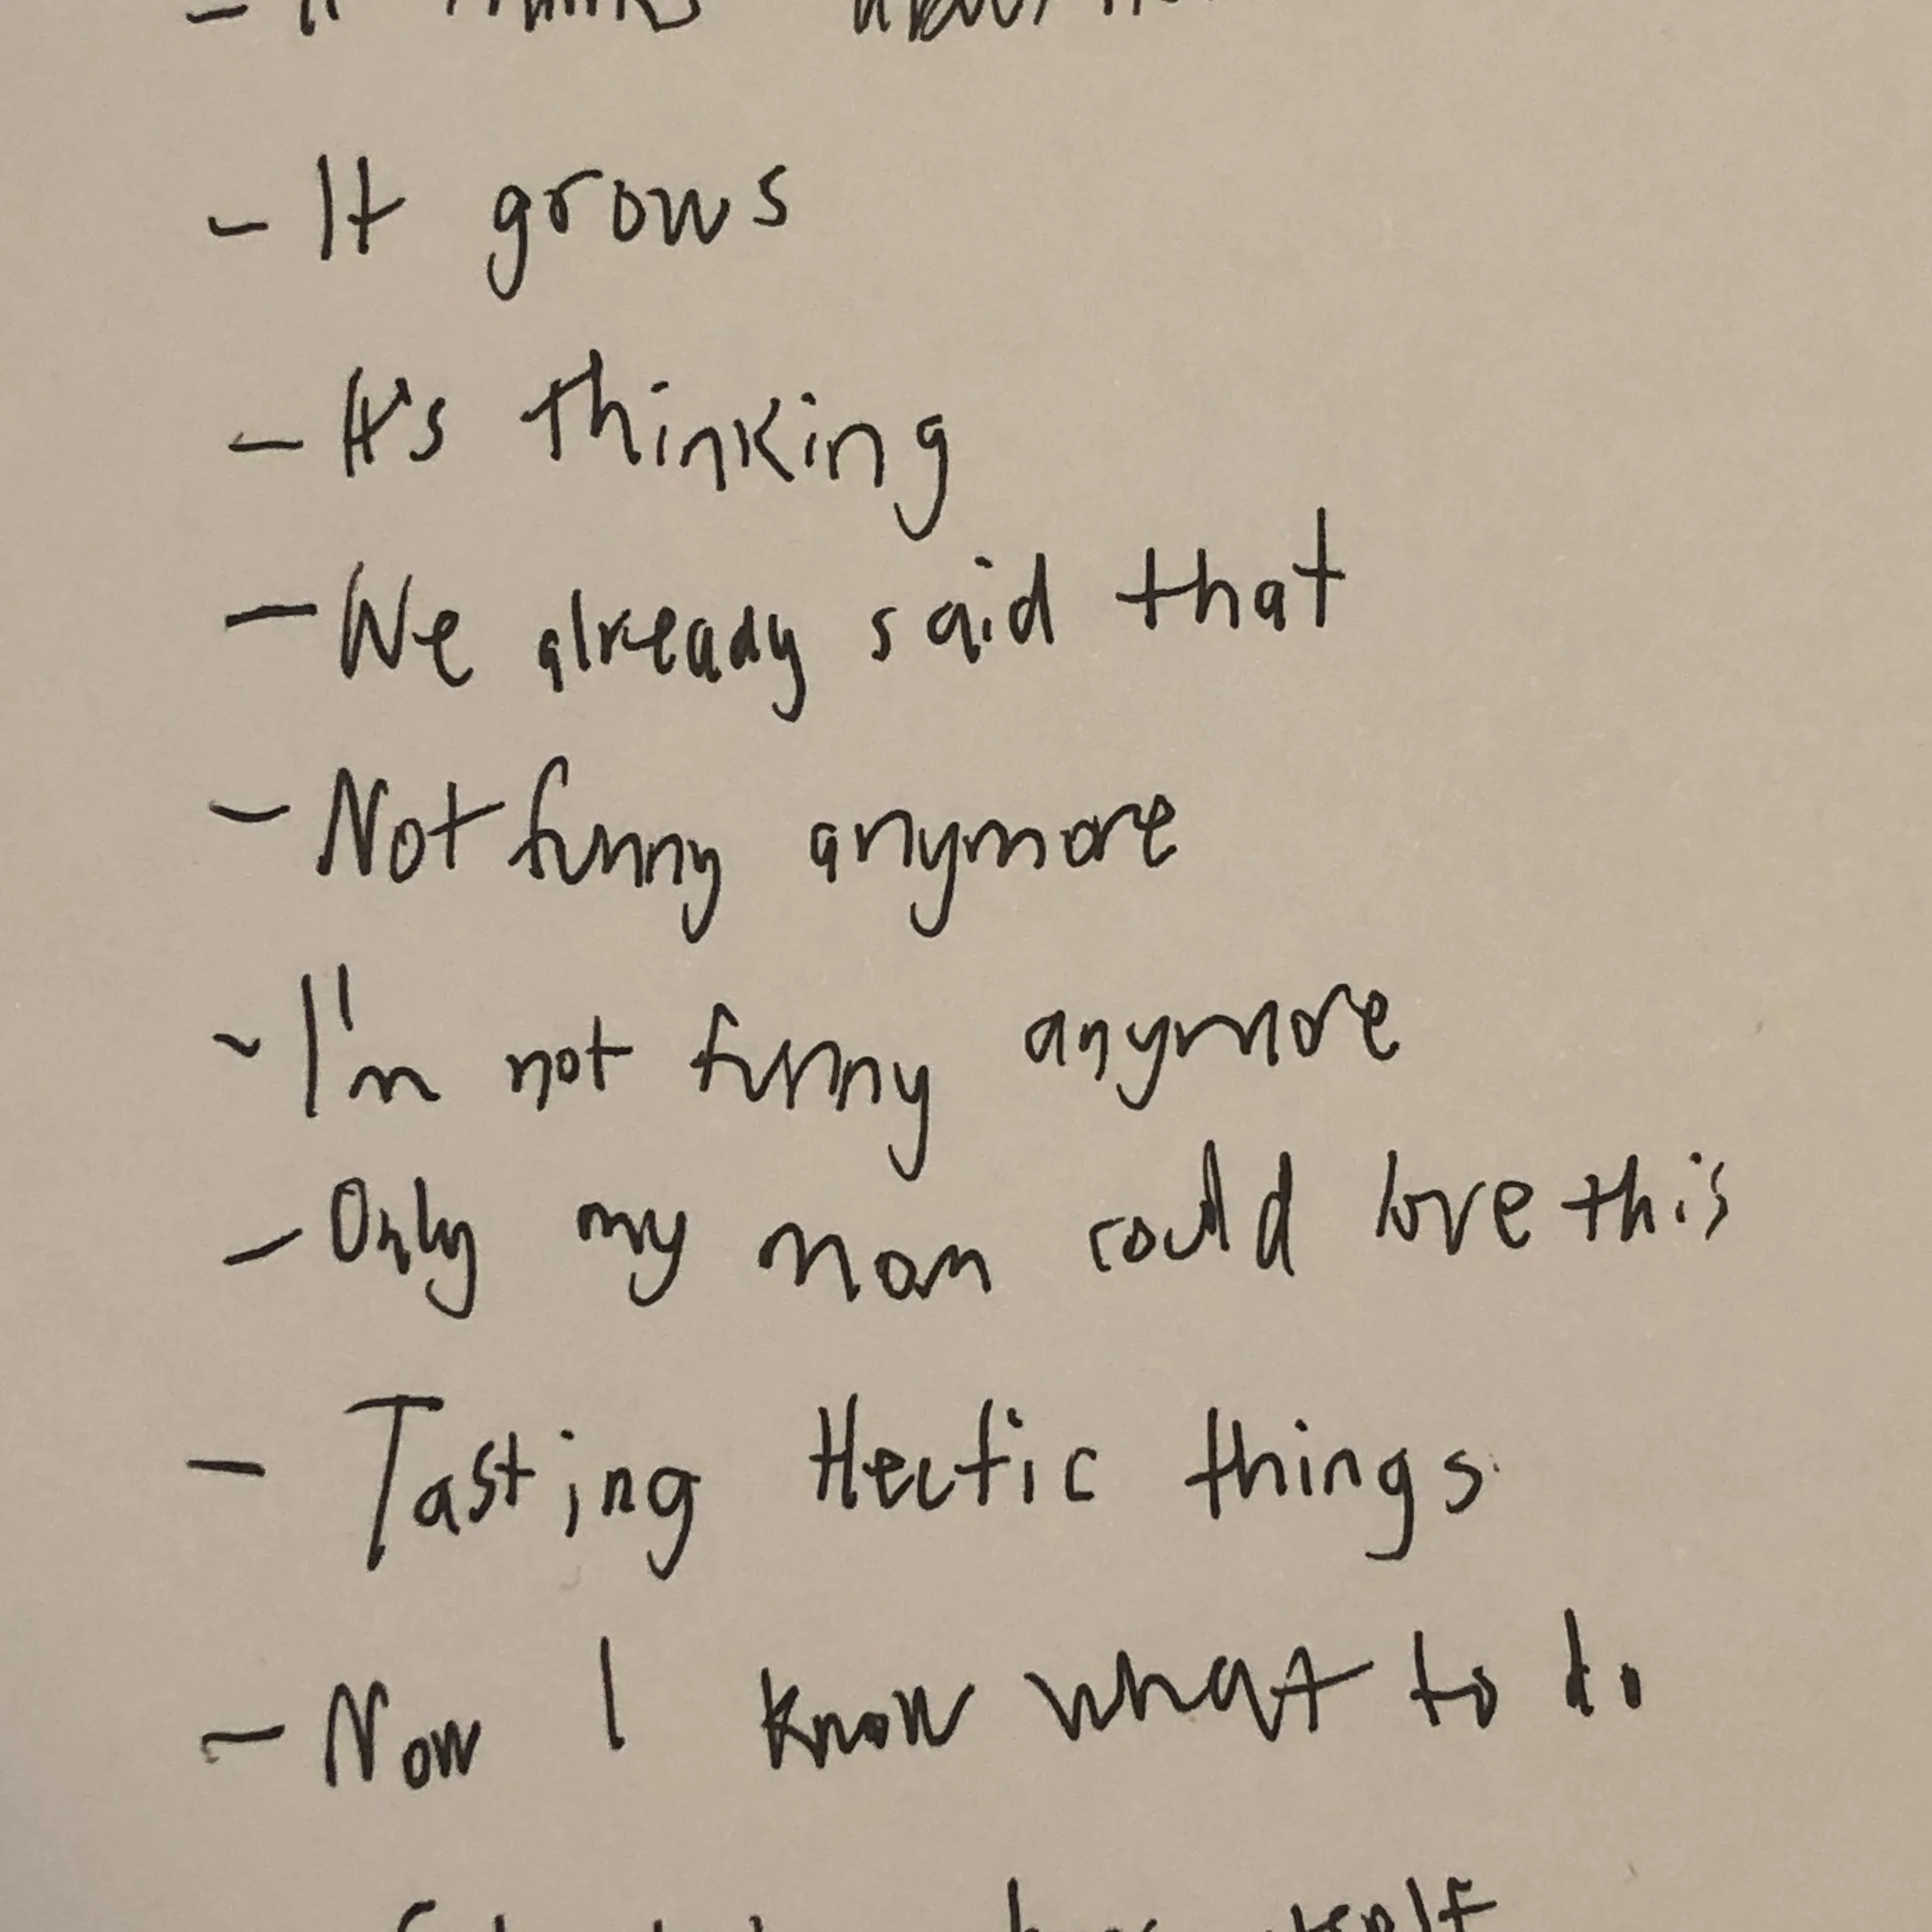 - It thinks about
- It grows
- It's thinking
- We already said that
- Not funny anymore
- I'm not funny anymore
- Only my mom could love this
- Tasting Hectic things
- Now I know what to do
itself